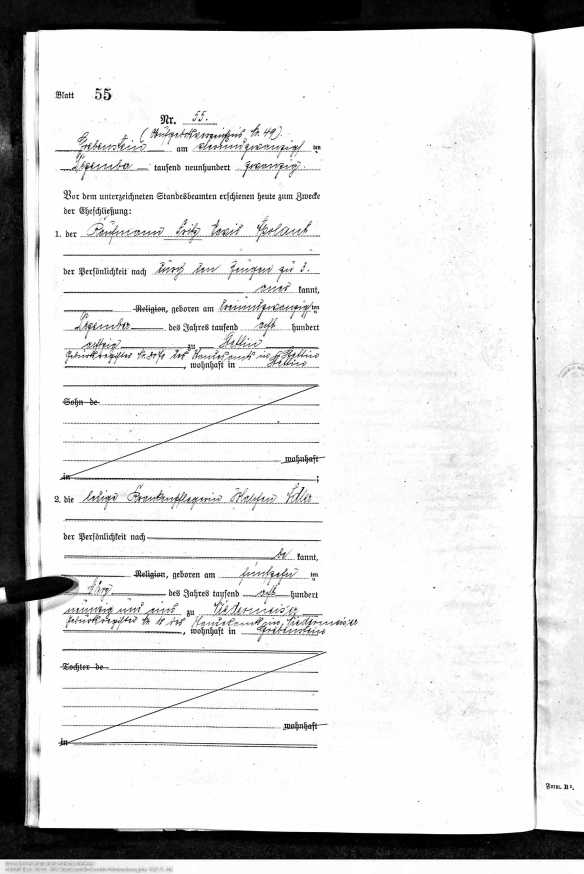 Blatt 55
Nr. 55.
(Aufgebotsverzeichnis Nr. 49).
Grebenstein am vierundzwanzigsten
Dezember tausend neunhundert zwanzig.
Vor dem unterzeichneten Standesbeamten erschienen heute zum Zwecke
der Eheschließung:
1. der Kaufmann Fritz Apolant
der Persönlichkeit nach durch den Zeugen zu 3.
aner kannt,
Religion, geboren am dreiundzwanzigsten
Dezember des Jahres tausend acht hundert
achtzig zu Stettin
Geburtsregister Nr. des Standesamts in Stettin
, wohnhaft in Stettin
Sohn de
wohnhaft
in ;
2. die ledige Krankenpflegerin Adler
der Persönlichkeit nach
be kannt,
Religion, geboren am fünfzehn ten
März des Jahres tausend acht hundert
neunzig und eins zu Niedermeiser
Geburtsregister Nr. des Standesamts in Niedermeiser
, wohnhaft in Grebenstein
Tochter de
wohnhaft
in
Form. B